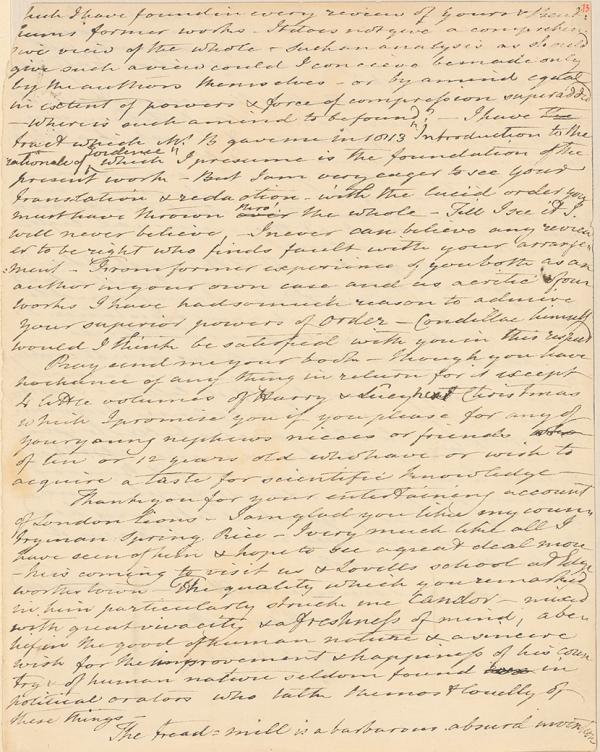 13
such I have found in every review of yours & Bent-
hams former works - It does not give a comprehen
sive view of the whole - Such an analysis as should
give such a view could I conceive be made only
by the authors themselves - or by a mind equal
in extent of powers & force of compression superadded
- Where is such a mind to be found? - I have the
tract which Mr. B gave me in 1813 "Introduction to the
rationale of evidence" which I presume is the foundation of the
present work - But I am very eager to see your
translation & redaction - with the lucid order you
must have thrown over thro' the whole - Till I see it I
will never believe, - I never can believe any review
er to be right who finds fault with your arrange-
ment - From former experience of you both as an
author in your own case and as a critic of our
works I have had so much reason to admire
your superior powers of Order - Condillac himself
would I think be satisfied with you in this respect
Pray send me your book - though you have
no chance of any thing in return for it except
2 little volumes of Harry & Lucy next Christmas
which I promise you if you please for any of
your young nephews nieces or friends
of ten or 12 years old who have or wish to
acquire a taste for scientific knowledge -
Thank you for your entertaining account
of London lions - I am glad you like my coun-
tryman Spring Rice - I very much like all I
have seen of him & hope to see a great deal more
- he is coming to visit us & Lovells school at Edge
worthstown - The quality which you remarked
in him particularly struck me Candor - mixed
with great vivacity & a freshness of mind, a be-
lief in the good of human nature & a sincere
wish for the improvement & happiness of his coun
try & of human nature seldom found in
political orators who talk the most & loudly of
these things
The tread-mill is a barbarous absurd invention